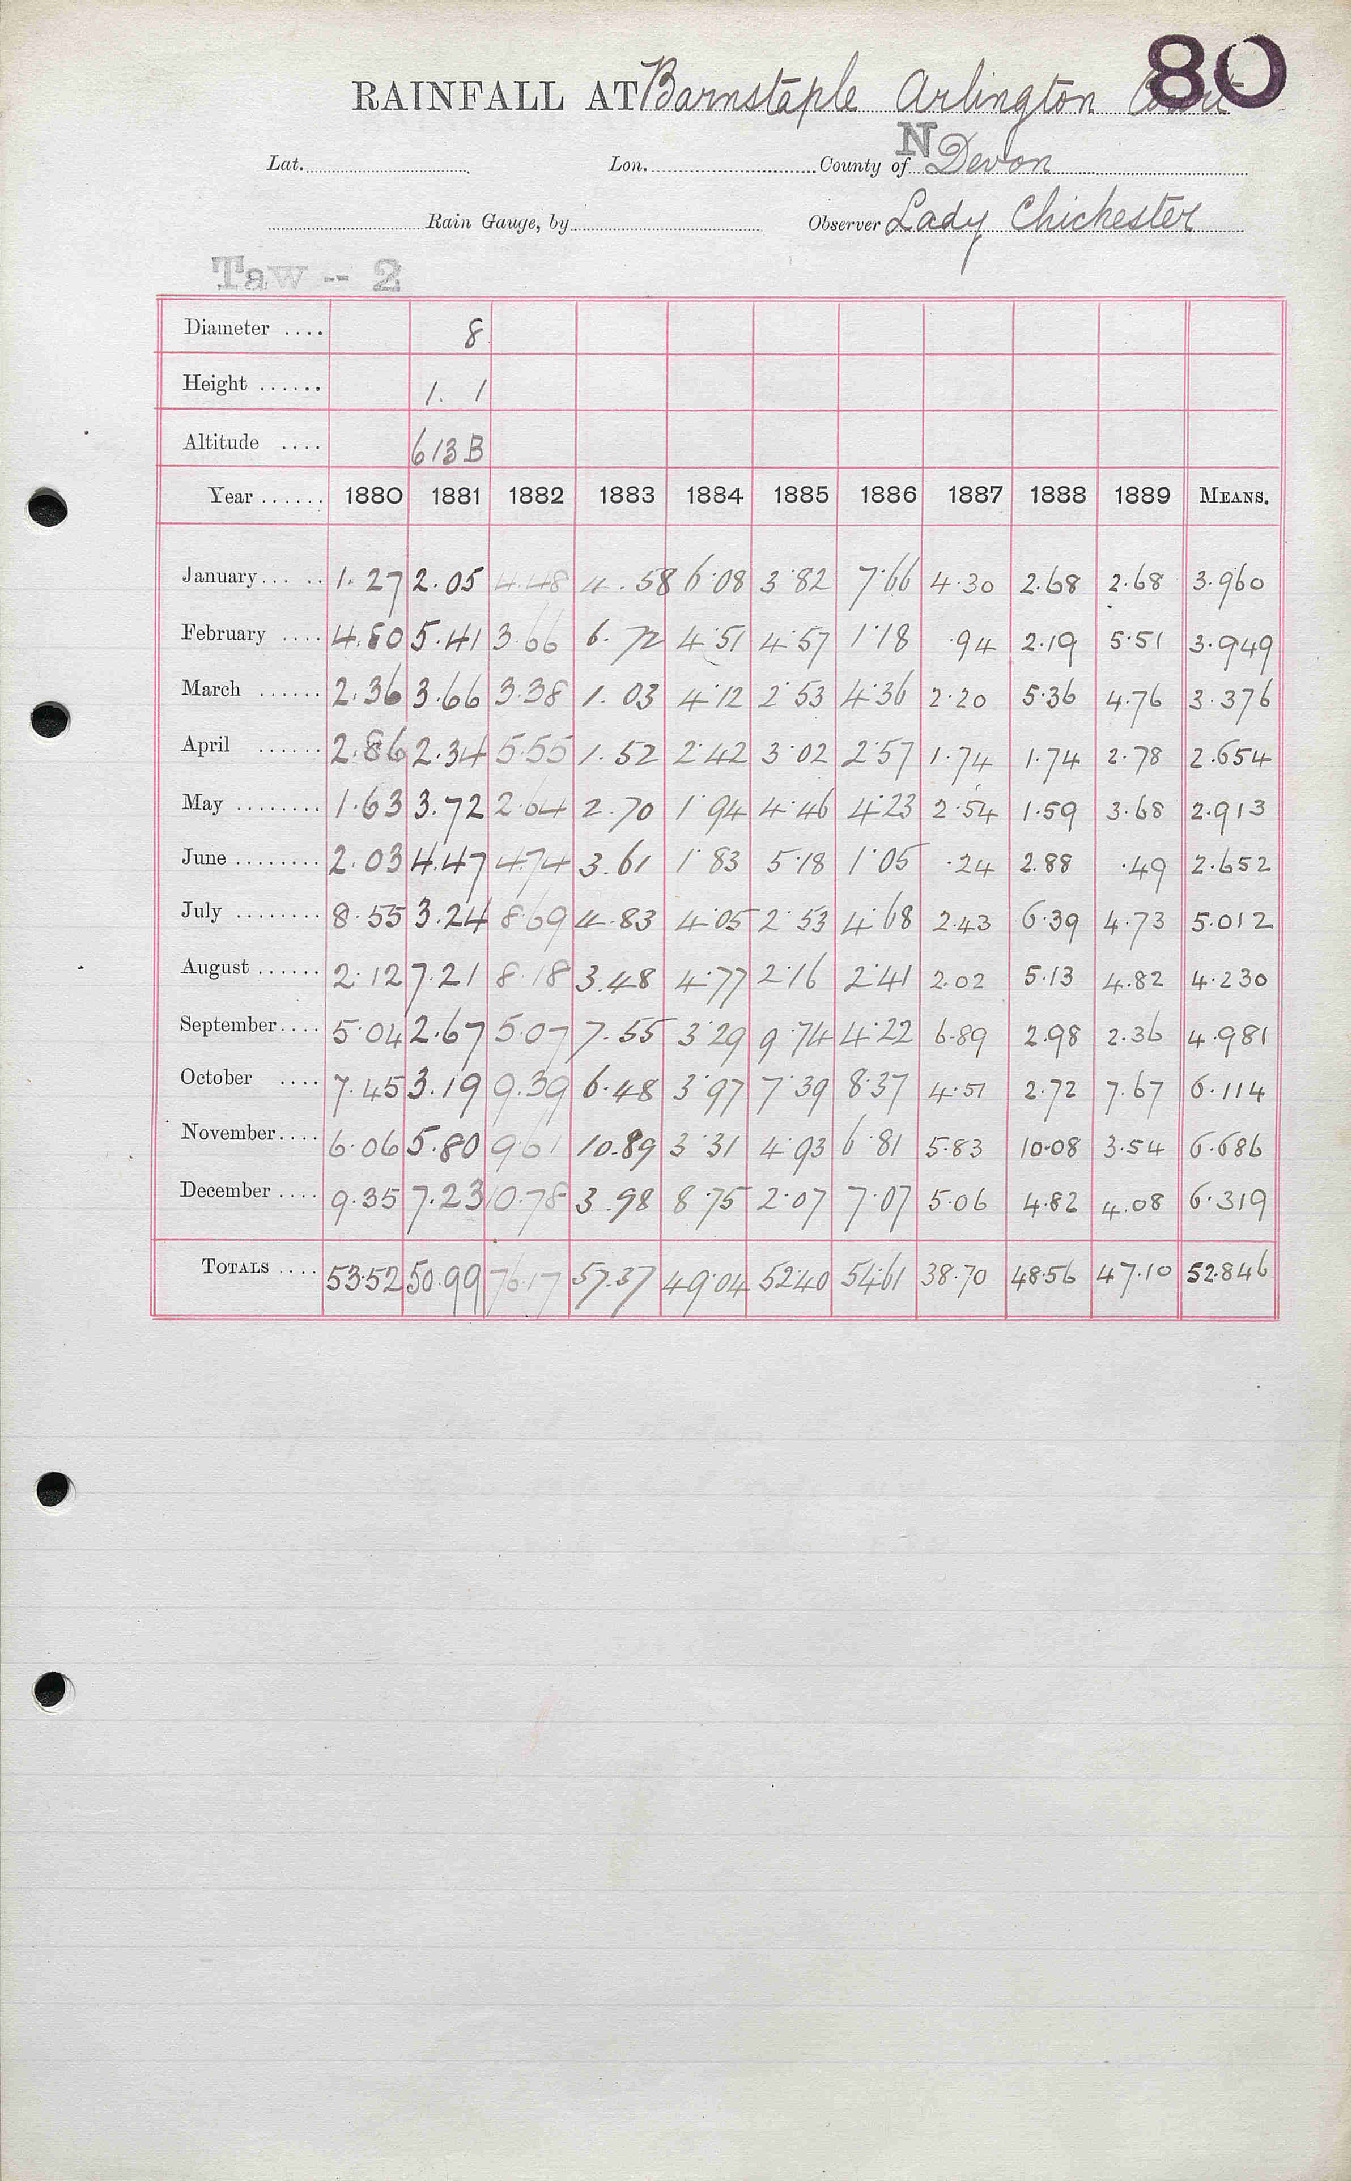 80
RAINFALL AT Barnstaple Arlington Court
Lat. Lon. County of N Devon
Rain Gauge, by Observer Lady Chichester
Taw -- 2
Diameter .... 8
Height ...... 1. 1
Altitude .... 613B
Year ...... 1880 1881 1882 1883 1884 1885 1886 1887 1888 1889 MEANS.
January... .. 1.27 2.05 4.48 4.58 6.08 3.82 7.66 4.30 2.68 2.68 3.960
February .... 4.80 5.41 3.66 6.72 4.51 4.57 1.18 .94 2.19 5.51 3.949
March ...... 2.36 3.66 3.38 1.03 4.12 2.53 4.36 2.20 5.36 4.76 3.376
April ...... 2.86 2.34 5.55 1.52 2.42 3.02 2.57 1.74 1.74 2.78 2.654
May ........ 1.63 3.72 2.64 2.70 1.94 4.46 4.23 2.54 1.59 3.68 2.913
June ........ 2.03 4.47 4.74 3.61 1.83 5.18 1.05 .24 2.88 .49 2.652
July ........ 8.55 3.24 8.69 4.83 4.05 2.53 4.68 2.43 6.39 4.73 5.012
August ...... 2.12 7.21 8.18 3.48 4.77 2.16 2.41 2.02 5.13 4.82 4.230
September.... 5.04 2.67 5.07 7.55 3.29 9.74 4.22 6.89 2.98 2.36 4.981
October .... 7.45 3.19 9.39 6.48 3.97 7.39 8.37 4.51 2.72 7.67 6.114
November.... 6.06 5.80 9.61 10.89 3.31 4.93 6.81 5.83 10.08 3.54 6.686
December .... 9.35 7.23 10.78 3.98 8.75 2.07 7.07 5.06 4.82 4.08 6.319
TOTALS .... 53.52 50.99 76.17 57.37 49.04 52.40 54.61 38.70 48.56 47.10 52.846